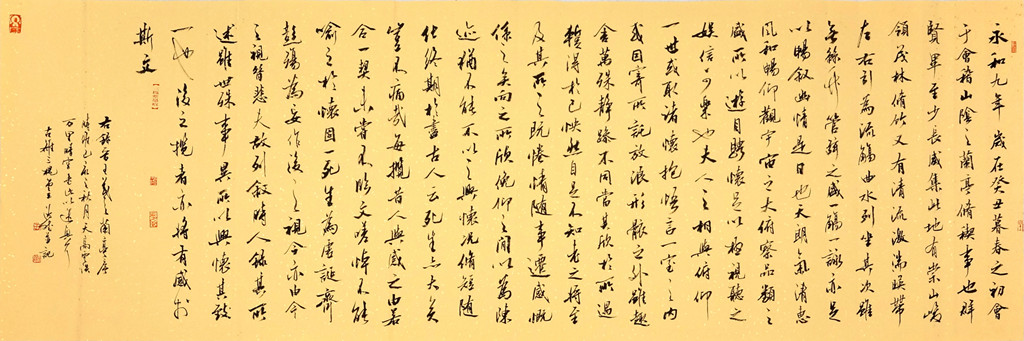 永和九年歲在癸丑暮春之初會
于會稽山陰之蘭亭脩禊事也群
賢畢至少長咸集此地有崇山峻
領茂林脩竹又有清流激湍暎帶
左右引為流觴曲水列坐其次雖
無絲竹管弦之盛一觴一詠亦足
以暢敘幽情是日也天朗氣清惠
風和暢仰觀宇宙之大俯察品類之
盛所以遊目騁懷足以極視聽之
娛信可樂也夫人之相與俯仰
一世或取諸懷抱悟言一室之內
或因寄所託放浪形骸之外雖趣
舍萬殊靜躁不同當其欣於所遇
暫得於己怏然自足不知老之將至
及其所之既惓情隨事遷感慨
係之矣向之所欣俛仰之間以為陳
迹猶不能不以之興懷況脩短隨
化終期於盡古人云死生亦大矣
豈不痛哉每攬昔人興感之由若
合一契未嘗不臨文嗟悼不能
喻之於懷固一死生為虛誕齊
彭殤為妄作後之視今亦由今
之視昔悲夫故列敘時人錄其所
述雖世殊事異所以興懷其致
一也後之攬者亦將有感於
斯文
右錄晉王羲之蘭亭序
之秋月天高雲淡
万里晴空